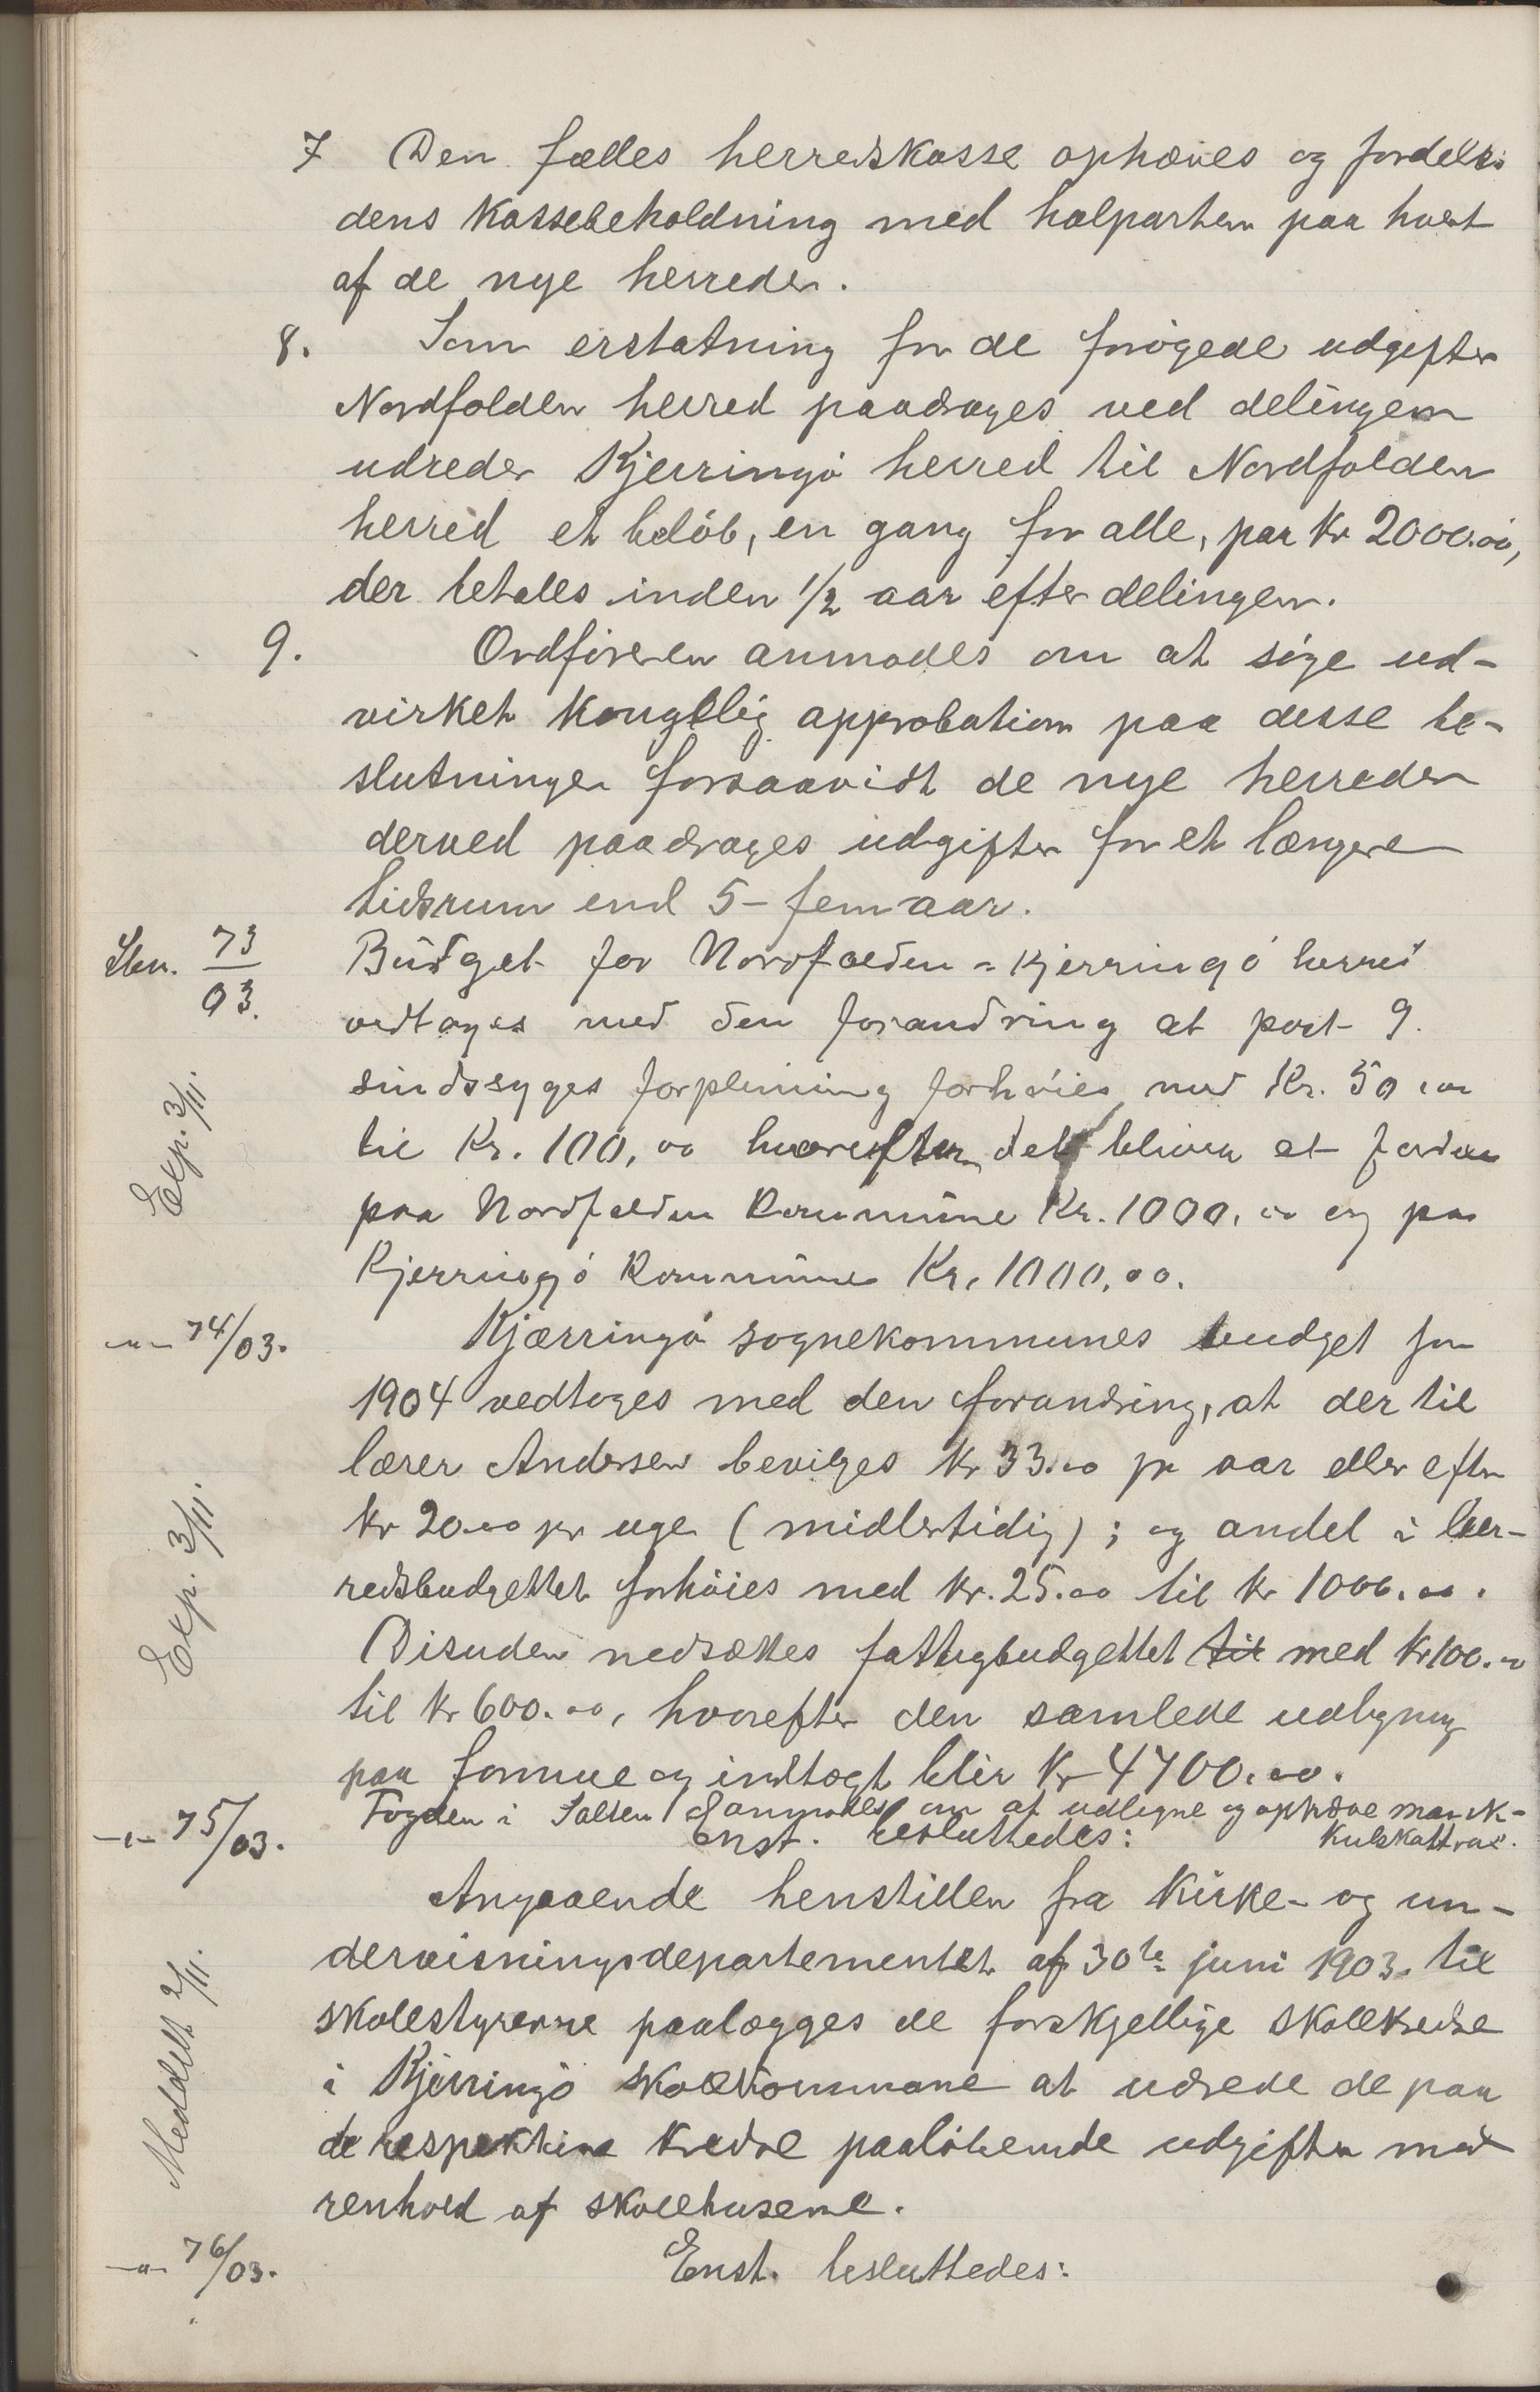 7 Den fælles herredskasse ophæves og fordeles
dens kassebeholdning med halparten paa hvert
af de nye herreder.
8. Som erstatning for de forøgede udgifter
Nordfolden herred paadrages ved delingen
udreder Kjerringø herred til Nordfolden
herred et beløb, en gang for alle, paa kr 2000.00,
der betales inden 1/2 aar efter delingen.
9. Ordføreren anmodes om at søge ud-
virket kongelig approbation paa disse be-
slutninger forsaavidt de nye herreder
derved paadrages udgifter for et længere
tidsrum end 5 - fem aar.
Sbn. 73/03. Budget for Nordfolden = Kjerringø herred
vedtoges med den forandring at post 9.
Exp. 3/11. sindssyges forpleining forhøies med Kr. 50,00
til Kr. 100,00 hvorefter det bliver at fordele
paa Nordfolden Kommune Kr. 1000,00 og paa
Kjerringø Kommune Kr. 1000,00.
-"- 74/03. Kjærringø sognekommunes budget for
1904 vedtoges med den forandring, at der til
lærer Andersen beviges kr 33.00 pr aar eller efter
Exp. 3/11. kr 20.00 pr uge (midlertidig); og andel i her-
redsbudgettet forhøies med kr. 25.00 til kr 1000.00.
Disuden nedsættes fattigbudgettet til med kr 100.00
til kr 600.00, hvorefter den samlede udligning
paa formue og indtægt blir kr 4700.00.
Fogden i Salten anmodes om at udligne og ophæve manck-
-"- 75/03. Enst. besluttedes: kulskattene.
Angaaende henstillen fra Kirke- og un-
dervisningsdepartementet af 30te juni 1903. til
Meddelt 2/11. skolestyrerne paalægges de forskjellige skolekredse
i Kjerringø skolekommune at udrede de paa
de respektive kredse paaløbende udgifter med
renhold af skolehusene.
-"- 76/03. Enst. besluttedes: